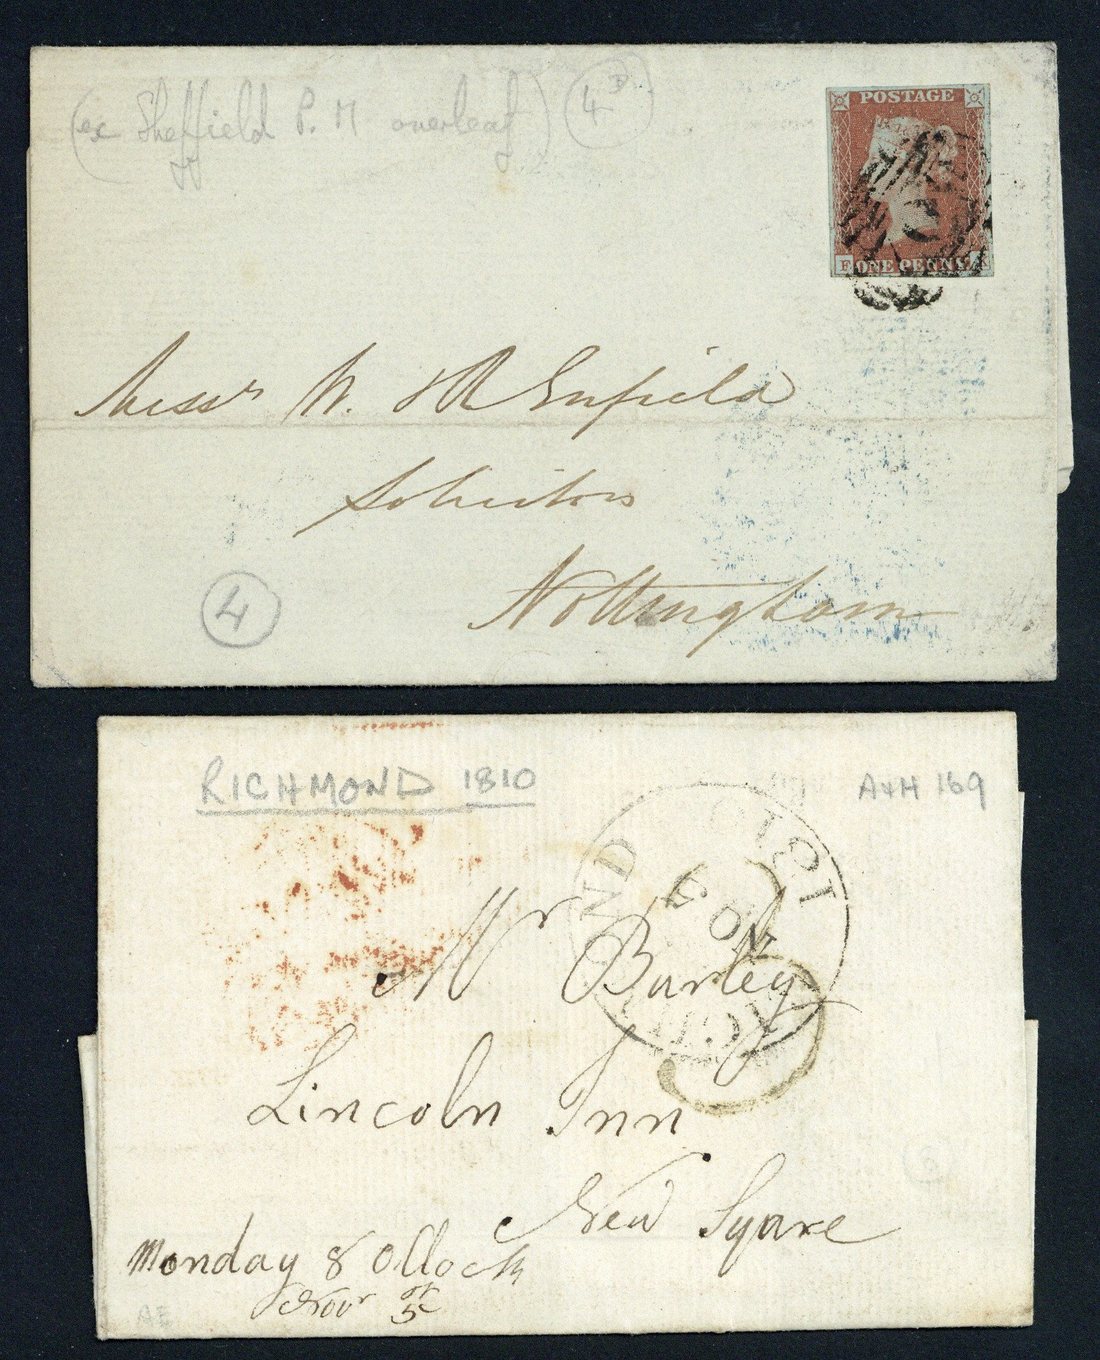 (ex Sheffield P. M overleaf) 4D
POSTAGE
F ONE PENNY
Messrs W. & R Enfield
Solicitors
Nottingham
4
RICHMOND 1810
A+H 169
ND
NO
Mr Burley
Lincoln Inn
New Square
Monday 8 Ollock
Novr 5
AE